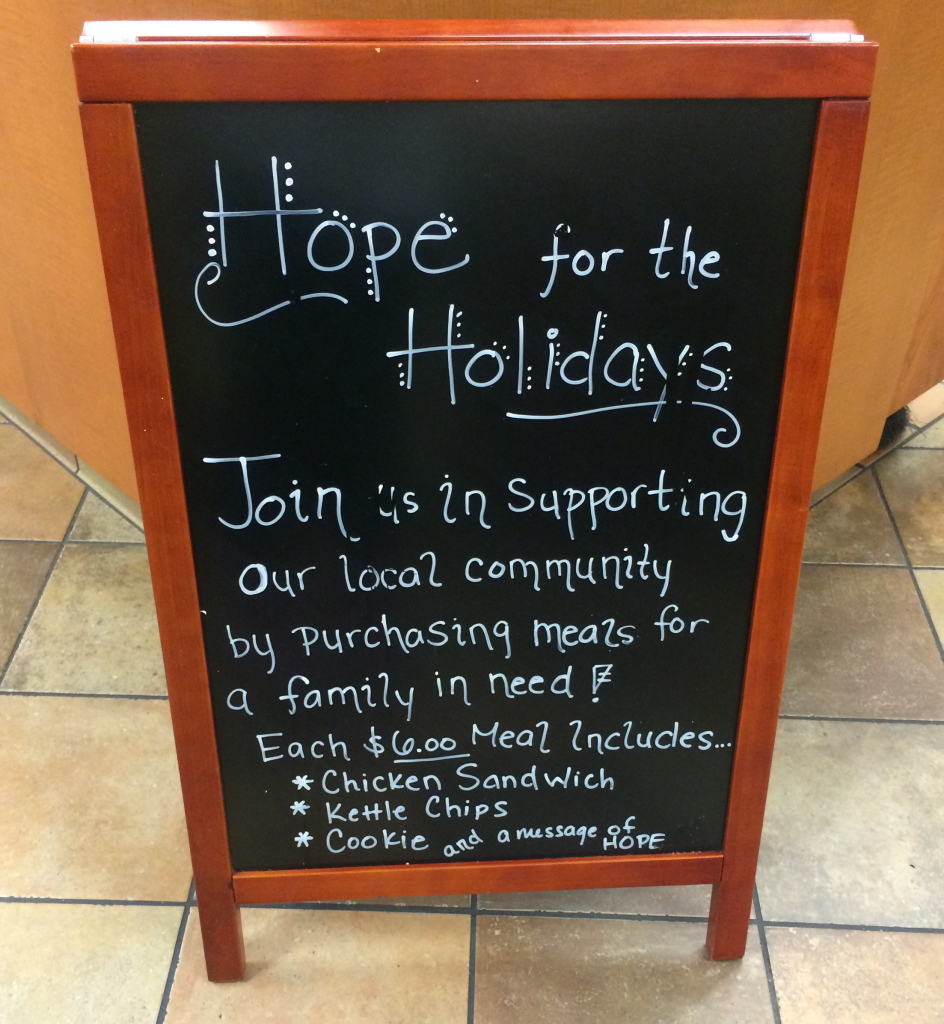 Hope for the
Holidays
Join us in Supporting
Our local community
by purchasing meals for
a family in need!
Each $6.00 Meal Includes...
* Chicken Sandwich
* Kettle Chips
* Cookie and a message of HOPE